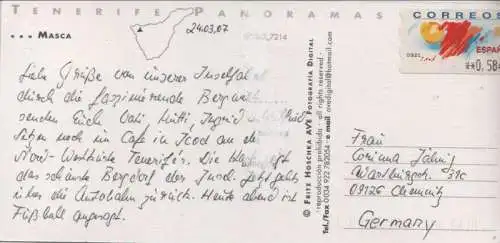 TENERIFE PANORAMAS
... MASCA
24.03.07
CORREOS
ESPAÑA
**0,58
Liebe Grüße von unserer Inselfahrt
durch die faszinierende Bergwelt
senden Euch Vati, Mutti, Ingrid
Sitzen noch im Cafe in Icod an der
Nord-Westküste Teneriffas. Die
das schönste Bergdorf der Insel. Jetzt geht's
über die Autobahn zurück. Heute abend ist
Fußball angesagt.
© FRITZ HOSCHKA AVE FOTOGRAFÍA DIGITAL
reproducción prohibida · all rights reserved
Tel./Fax 0034 922 782034 - e mail avedigital@hotmail.com
Frau
Corinna
31c
09126 Chemnitz
Germany